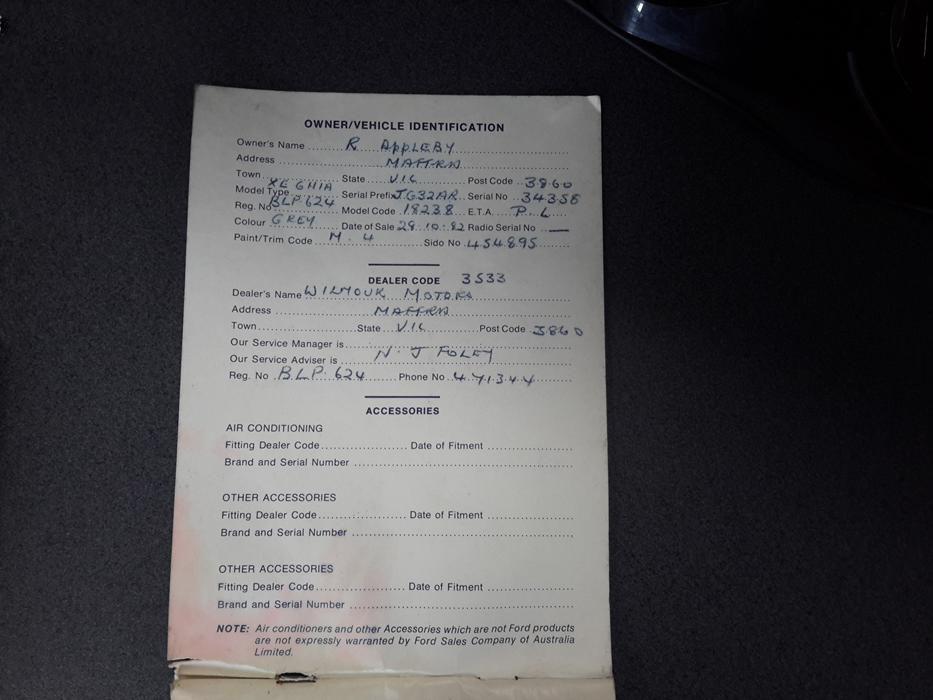 OWNER/VEHICLE IDENTIFICATION
Owner's Name ...... R APPLEBY
Address ...... MAFFRA
Town ...... State ... VIC ... Post Code ... 3860
Model Type XE GHIA Serial Prefix JG32AR Serial No 34356
Reg. No BLP 624 Model Code 18238 E.T.A. P. L
Colour GREY Date of Sale 29.10.82 Radio Serial No —
Paint/Trim Code M. 4 Sido No 454895
DEALER CODE 3533
Dealer's Name MOTORS
Address ...... MAFFRA
Town ...... State ... VIC ... Post Code 3860
Our Service Manager is ......
Our Service Adviser is N. J FOLEY
Reg. No BLP. 624 Phone No 471344
ACCESSORIES
AIR CONDITIONING
Fitting Dealer Code ...... Date of Fitment ......
Brand and Serial Number ......
OTHER ACCESSORIES
Fitting Dealer Code ...... Date of Fitment ......
Brand and Serial Number ......
OTHER ACCESSORIES
Fitting Dealer Code ...... Date of Fitment ......
Brand and Serial Number ......
NOTE: Air conditioners and other Accessories which are not Ford products
are not expressly warranted by Ford Sales Company of Australia
Limited.